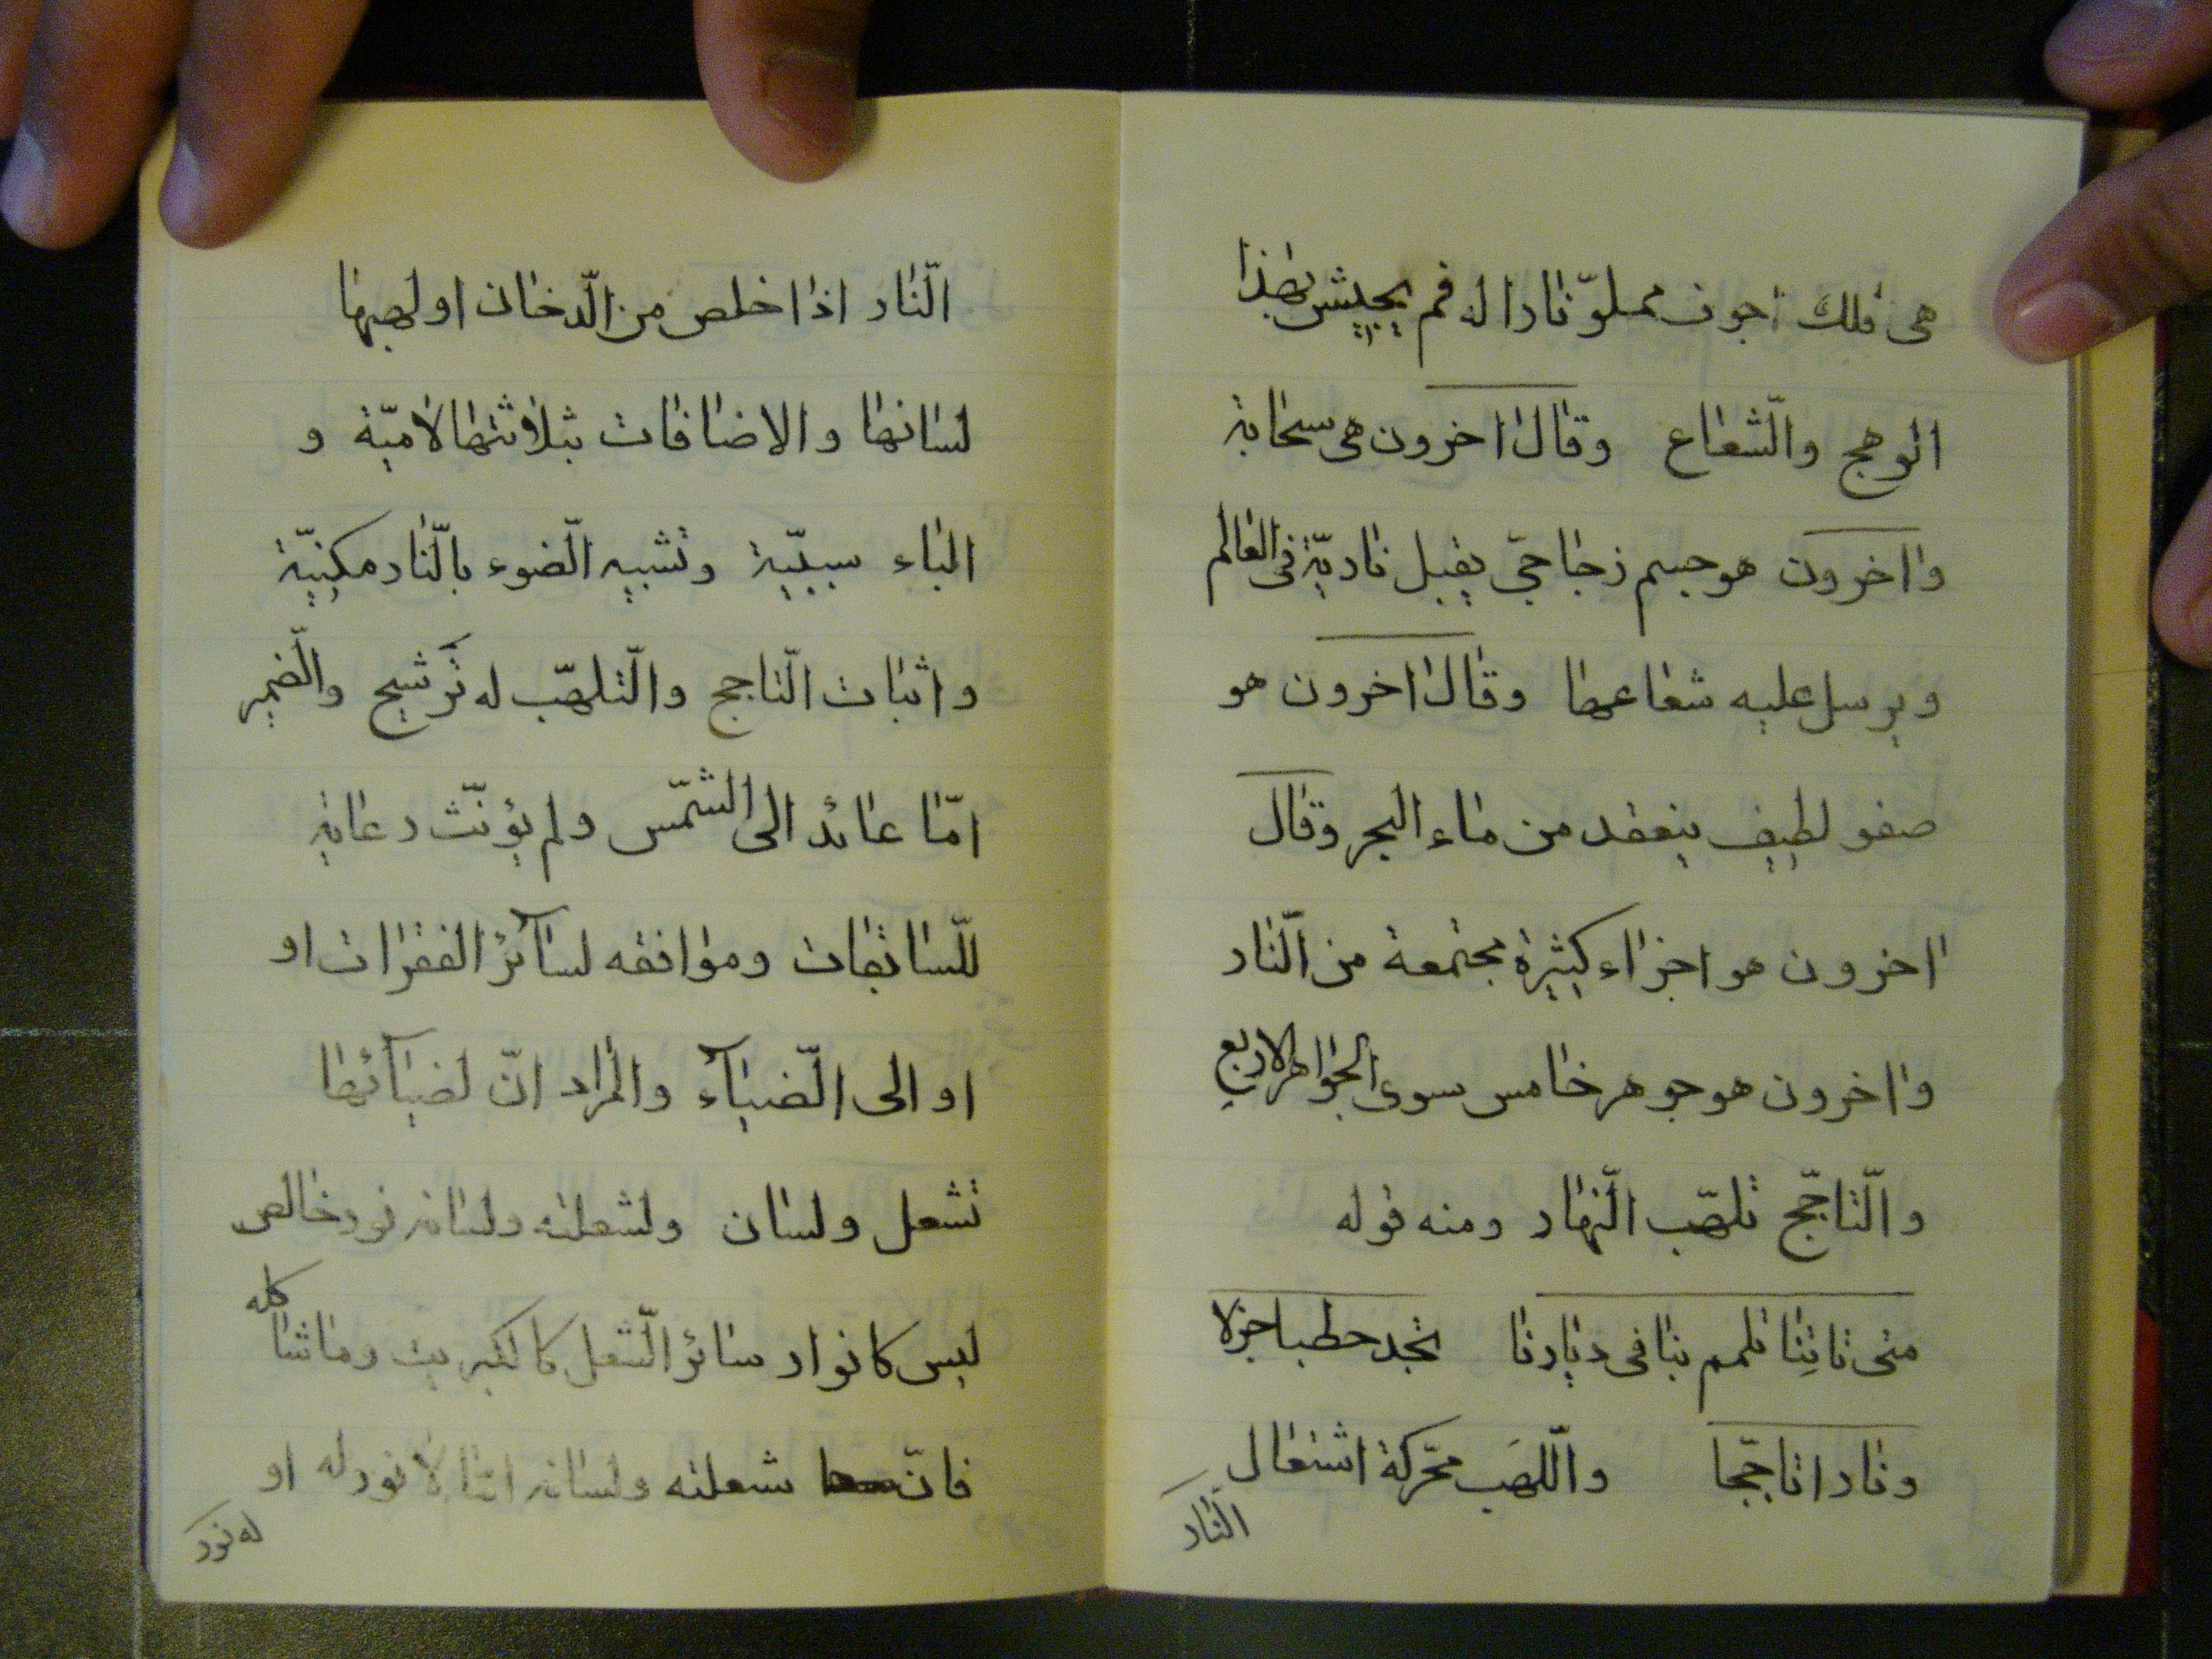 هى فلك اجوف مملوّ نارا له فم يجيش بهذا
الوهج والشّعاع وقال اخرون هى سحابة
واخرون هو جسم زجاجىّ يقبل ناريّة فى العالم
ويرسل عليه شعاعها وقال اخرون هو
صفو لطيف ينعقد من ماء البحر وقال
اخرون هو اجزاء كثيرة مجتمعة من النّار
واخرون هو جوهر خامس سوى الجواهر الاربع
والتّاجّج تلهّب النّهار ومنه قوله
متى تاتِنا تلمم بنا فى ديارنا تجد حطبا جزلا
ونارا تاجّجا واللّهَب محرّكة اشتعال
النّار
النّار اذا خلص من الدّخان او لهبها
لسانها والاضافات بثلاثتها لاميّة و
الباء سببيّة وتشبيه الضّوء بالنّار مكنيّة
واثبات التاجج والتّلهّب له تَرشيح والضّمير
امّا عائد الى الشّمس ولم يؤنّث رعاية
للسّابقات وموافقه لسآئر الفقرات او
او الى الضّيآء والمراد انّ لضيآئها
تشعل ولسان ولشعلته ولسانه نور خالص
ليس كانوار سائر الشّعل كالكبريت وما شاكله
فانّ شعلته ولسانه امّا لا نور له او
له نور